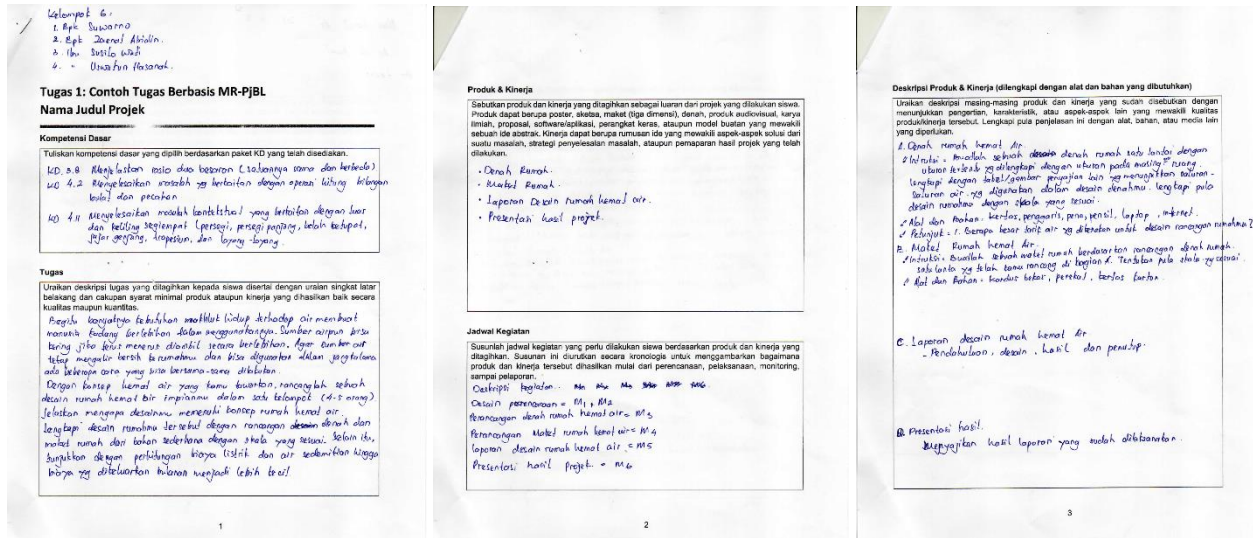 Kelompok 6:
1. Bpk Suwarno
2. Bpk Zaenal Abidin.
3. Ibu Susilo Wati
4. " Uswatun Hasanah.
Tugas 1: Contoh Tugas Berbasis MR-PjBL
Nama Judul Projek
Kompetensi Dasar
Tuliskan kompetensi dasar yang dipilih berdasarkan paket KD yang telah disediakan.
KD. 3.8 Menjelaskan rasio dua besaran (satuannya sama dan berbeda)
KD 4.2 Menyelesaikan masalah yg berkaitan dengan operasi hitung bilangan
bulat dan pecahan
KD 4.11 Menyelesaikan masalah kontekstual yang berkaitan dengan luas
dan keliling segiempat (persegi, persegi panjang, belah ketupat,
jajar genjang, trapesium, dan layang-layang.
Tugas
Uraikan deskripsi tugas yang ditagihkan kepada siswa disertai dengan uraian singkat latar
belakang dan cakupan syarat minimal produk ataupun kinerja yang dihasilkan baik secara
kualitas maupun kuantitas.
Begitu banyaknya kebutuhan makhluk hidup terhadap air membuat
manusia kadang berlebihan dalam menggunakannya. Sumber airpun bisa
kering jika terus menerus diambil secara berlebihan. Agar sumber air
tetap mengalir bersih ke rumahmu dan bisa digunakan dalam yang lama
ada beberapa cara yang bisa bersama-sama dilakukan.
Dengan konsep hemat air yang kamu tawarkan, rancanglah sebuah
desain rumah hemat air impianmu dalam satu kelompok (4-5 orang)
Jelaskan mengapa desainmu memenuhi konsep rumah hemat air.
Lengkapi desain rumahmu tersebut dengan rancangan denah dan
maket rumah dari bahan sederhana dengan skala yang sesuai. Selain itu,
tunjukkan dengan perhitungan biaya listrik dan air sedemikian hingga
biaya yg dikeluarkan bulanan menjadi lebih kecil.
1
Produk & Kinerja
Sebutkan produk dan kinerja yang ditagihkan sebagai luaran dari projek yang dilakukan siswa.
Produk dapat berupa poster, sketsa, maket (tiga dimensi), denah, produk audiovisual, karya
ilmiah, proposal, software/aplikasi, perangkat keras, ataupun model buatan yang mewakili
sebuah ide abstrak. Kinerja dapat berupa rumusan ide yang mewakili aspek-aspek solusi dari
suatu masalah, strategi penyelesaian masalah, ataupun pemaparan hasil projek yang telah
dilakukan.
• Denah Rumah.
• Maket Rumah.
• Laporan Desain rumah hemat air.
• Presentasi hasil projek.
Jadwal Kegiatan
Susunlah jadwal kegiatan yang perlu dilakukan siswa berdasarkan produk dan kinerja yang
ditagihkan. Susunan ini diurutkan secara kronologis untuk menggambarkan bagaimana
produk dan kinerja tersebut dihasilkan mulai dari perencanaan, pelaksanaan, monitoring,
sampai pelaporan.
Deskripsi kegiatan.
Desain perencanaan = M1, M2
Perancangan denah rumah hemat air = M3
Perancangan Maket rumah hemat air = M4
laporan desain rumah hemat air = M5
Presentasi hasil Projek. = M6
2
Deskripsi Produk & Kinerja (dilengkapi dengan alat dan bahan yang dibutuhkan)
Uraikan deskripsi masing-masing produk dan kinerja yang sudah disebutkan dengan
menunjukkan pengertian, karakteristik, atau aspek-aspek lain yang mewakili kualitas
produk/kinerja tersebut. Lengkapi pula penjelasan ini dengan alat, bahan, atau media lain
yang diperlukan.
A. Denah rumah hemat Air.
Intruksi = Buatlah sebuah denah rumah satu lantai dengan
ukuran tertentu yg dilengkapi dengan ukuran pada masing2 ruang.
lengkapi dengan tabel/gambar penyajian lain yg menunjukkan saluran-
saluran air yg digunakan dalam desain denahmu. lengkapi pula
desain rumahmu dengan skala yang sesuai.
Alat dan bahan: kertas, penggaris, pena, pensil, laptop, internet.
Petunjuk = 1. Berapa besar tarif air yg dikenakan untuk desain rancangan rumahmu?
B. Maket Rumah hemat Air.
Intruksi = Buatlah sebuah maket rumah berdasarkan rancangan denah rumah
satu lantai yg telah kamu rancang di bagian A. Tentukan pula skala yg sesuai.
Alat dan Bahan = kardus bekas, perekat, kertas karton.
C. Laporan desain rumah hemat Air
- Pendahuluan, desain, hasil dan penutup.
D. Presentasi hasil.
Menyajikan hasil laporan yang sudah dilaksanakan.
3